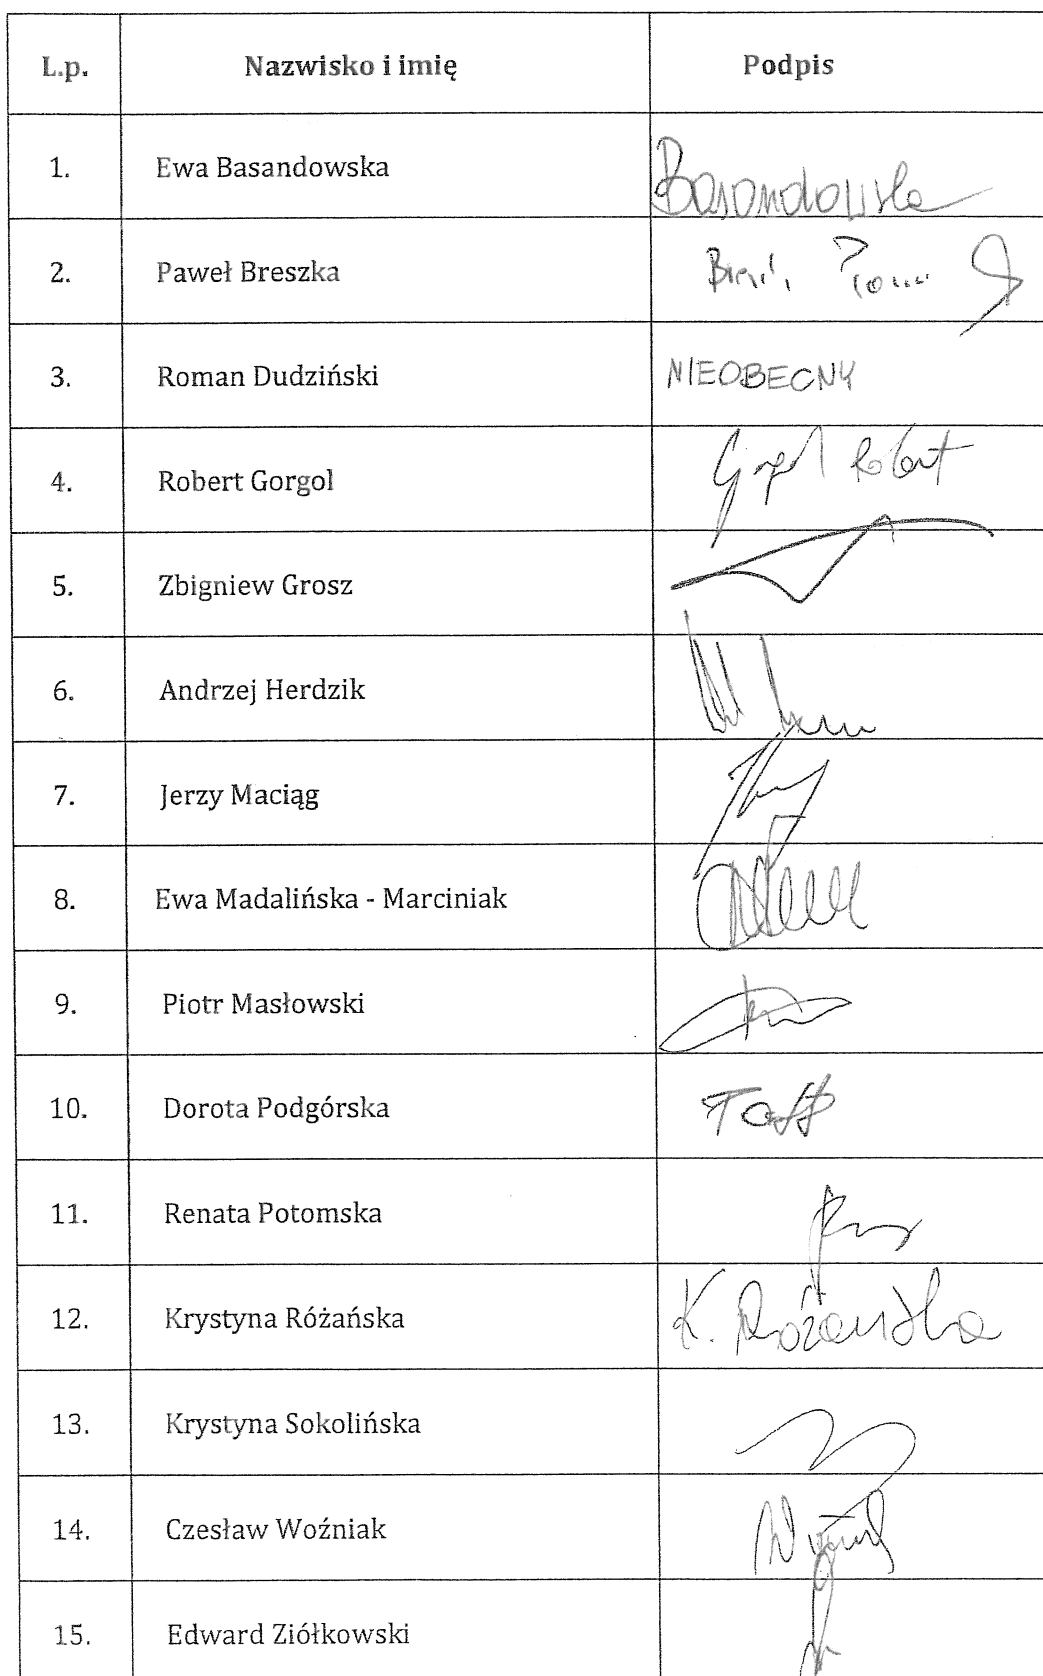 L.p. Nazwisko i imię Podpis
1. Ewa Basandowska Basandowska
2. Paweł Breszka
3. Roman Dudziński NIEOBECNY
4. Robert Gorgol Gorgol Robert
5. Zbigniew Grosz
6. Andrzej Herdzik
7. Jerzy Maciąg
8. Ewa Madalińska - Marciniak
9. Piotr Masłowski
10. Dorota Podgórska
11. Renata Potomska
12. Krystyna Różańska K. Różańska
13. Krystyna Sokolińska
14. Czesław Woźniak
15. Edward Ziółkowski